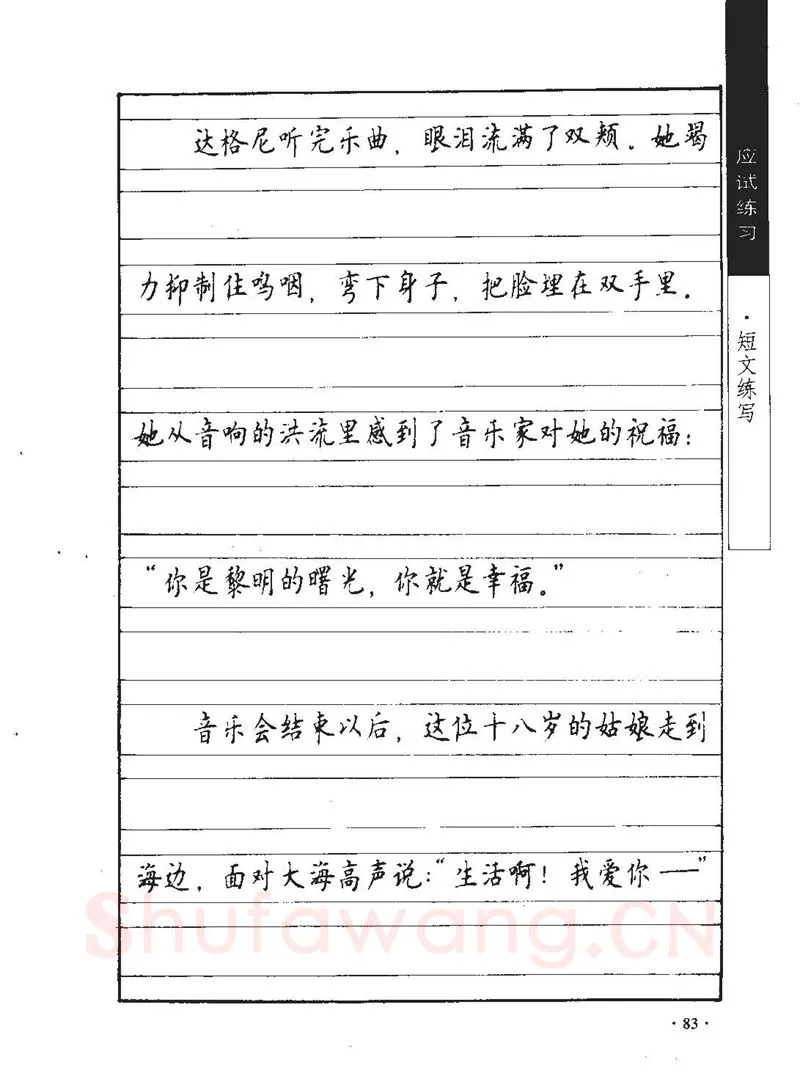 达格尼听完乐曲，眼泪流满了双颊。她竭
力抑制住呜咽，弯下身子，把脸埋在双手里。
她从音响的洪流里感到了音乐家对她的祝福：
“你是黎明的曙光，你就是幸福。”
音乐会结束以后，这位十八岁的姑娘走到
海边，面对大海高声说：“生活啊！我爱你——”
应试练习
·短文练写
Shufawang.CN
·83·